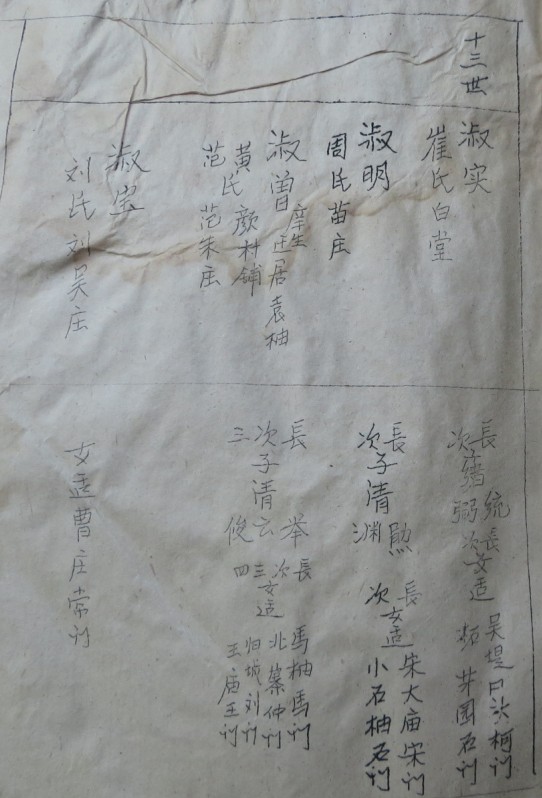 十三世
淑实
崔氏白堂
淑明
周氏苗庄
淑曾 庠生 迁居袁柚
黄氏 颜村铺
范氏 范朱庄
淑宝
刘氏 刘吴庄
長 統
次子 清 弼
長 吴堤口头 柯門
次女适 芽園石門
長 勲
次子清 渊
長 宋大庙宋門
次女适 小石柚石門
長 举
次子清 云
三 俊
長 馬柚馬門
次 北寨仲門
三女适 归城刘門
四 王庙王門
女适曹庄常門